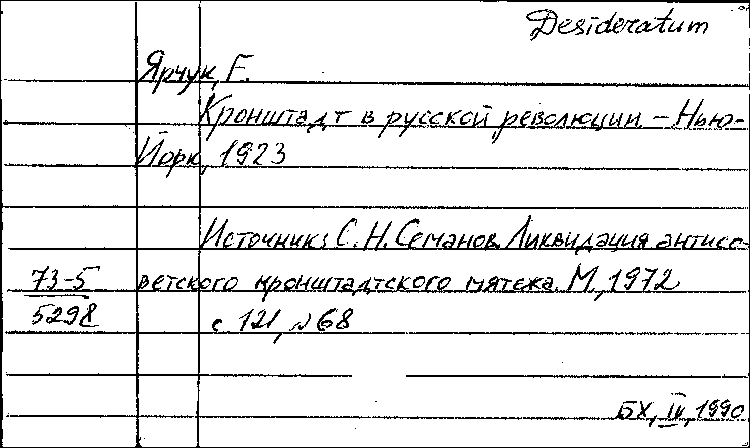 Desideratum
Ярчук, Е.
Кронштадт в русской революции. – Нью-
Йорк, 1923
Источник: С. Н. Семанов. Ликвидация антисо-
73-5 ветского кронштадтского мятежа. М., 1972
5298 с. 121, №68
БХ, IV, 1990